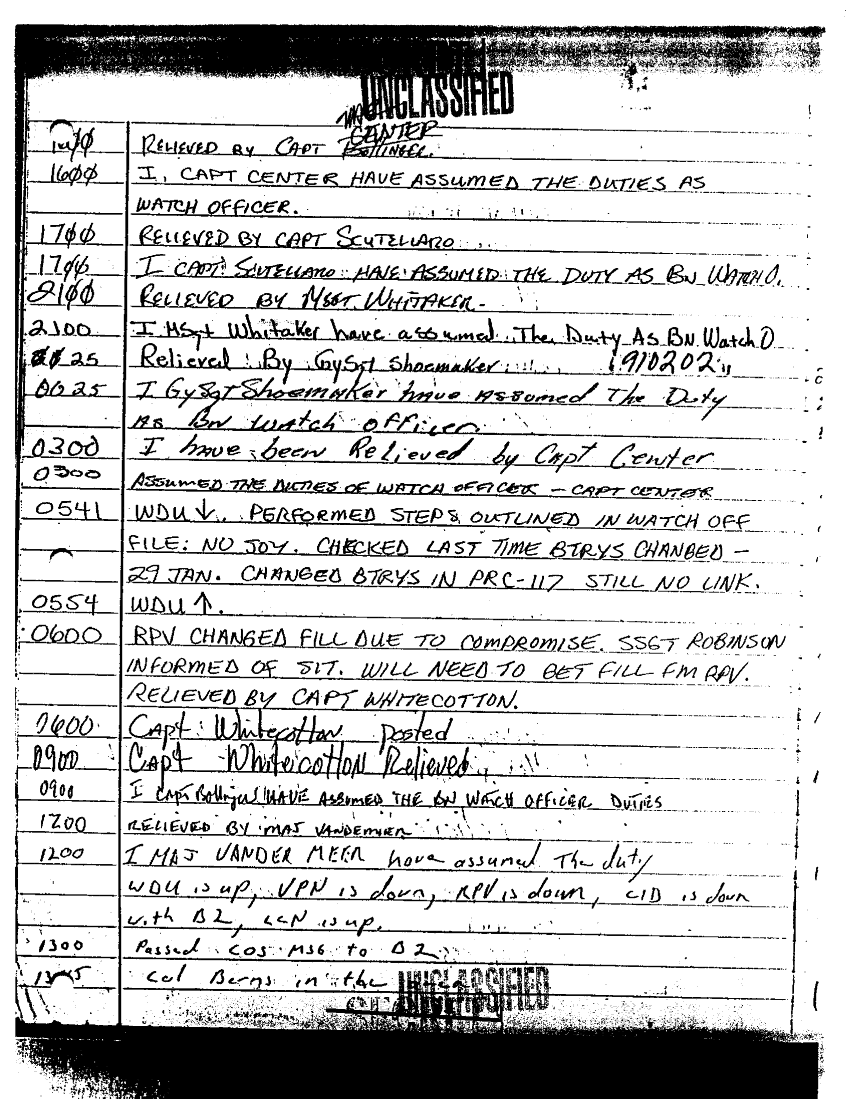 UNCLASSIFIED
CENTER
RELIEVED BY CAPT BOLLINGER.
16ØØ I, CAPT CENTER HAVE ASSUMED THE DUTIES AS
WATCH OFFICER.
17ØØ RELIEVED BY CAPT SCUTELLARO
17ØØ I CAPT SCUTELLARO HAVE ASSUMED THE DUTY AS BN WATCH O.
21ØØ RELIEVED BY MSGT WHITAKER-
2100 I MSgt Whitaker have assumed The Duty As BN Watch O
0025 Relieved By GySgt Shoemaker 910202
0025 I GySgt Shoemaker have Assumed The Duty
As BN Watch officer
0300 I have been Relieved by Capt Center
0300 ASSUMED THE DUTIES OF WATCH OFFICER – CAPT CENTER
0541 WDU ↓. PERFORMED STEPS OUTLINED IN WATCH OFF
FILE: NO JOY. CHECKED LAST TIME BTRYS CHANGED –
29 JAN. CHANGED BTRYS IN PRC-117 STILL NO LINK.
0554 WDU ↑.
0600 RPV CHANGED FILL DUE TO COMPROMISE. SSGT ROBINSON
INFORMED OF SIT. WILL NEED TO GET FILL FM RPV.
RELIEVED BY CAPT WHITECOTTON.
0600 Capt Whitecotton posted
0900 Capt Whitecotton Relieved
0900 I Capt Bollinger HAVE ASSUMED THE BN WATCH OFFICER DUTIES
1200 RELIEVED BY MAJ VANDEMEER
1200 I MAJ VANDER MEER have assumed The duty
WDU is up, VPN is down, RPV is down, CID is down
with D2, LCN is up.
1300 Passed COS MSG to D2
Col Berns in the
UNCLASSIFIED